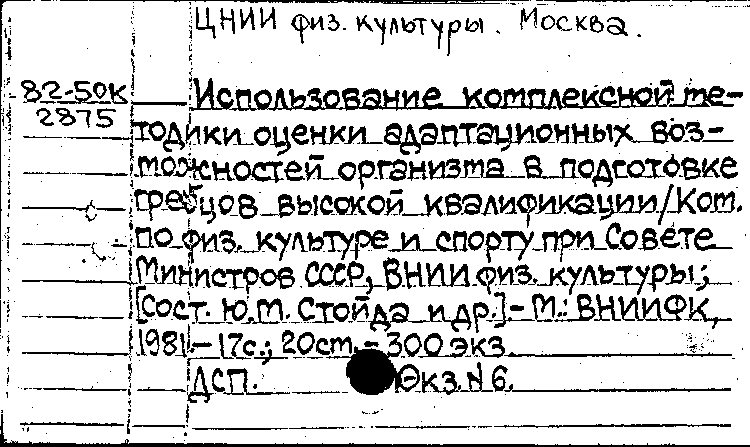 ЦНИИ физ. культуры. Москва.
82-50К
2875
Использование комплексной ме-
тодики оценки адаптационных воз-
можностей организма в подготовке
гребцов высокой квалификации/Ком.
по физ. культуре и спорту при Совете
Министров СССР, ВНИИ физ. культуры;
[Сост. Ю.М. Стойда и др.].- М.: ВНИИФК,
1981.- 17с.; 20см.- 300 экз.
ДСП. Экз.№6.